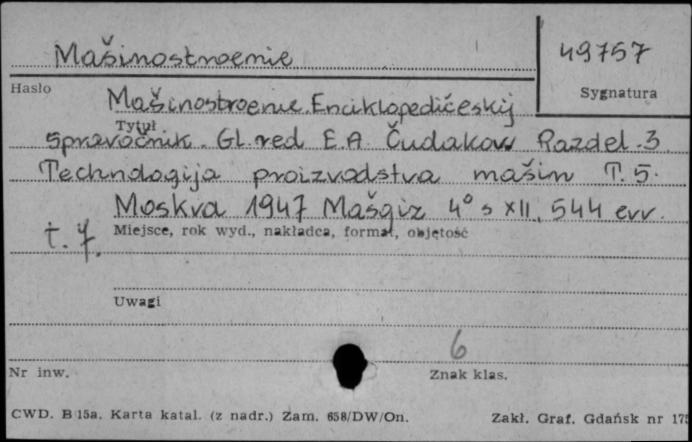 Mašinostroenie
49757
Hasło
Sygnatura
Mašinostroenie. Enciklopedičeskij
Tytuł
spravočnik. Gl. red E.A. Čudakow Razdel. 3.
Technologija proizvodstva mašin T. 5.
Moskva 1947 Mašgiz 4° s XII, 544 err.
t. 7.
Miejsce, rok wyd., nakładca, format, objętość
Uwagi
6
Nr inw.
Znak klas.
CWD. B 15a. Karta katal. (z nadr.) Zam. 658/DW/On.
Zakł. Graf. Gdańsk nr